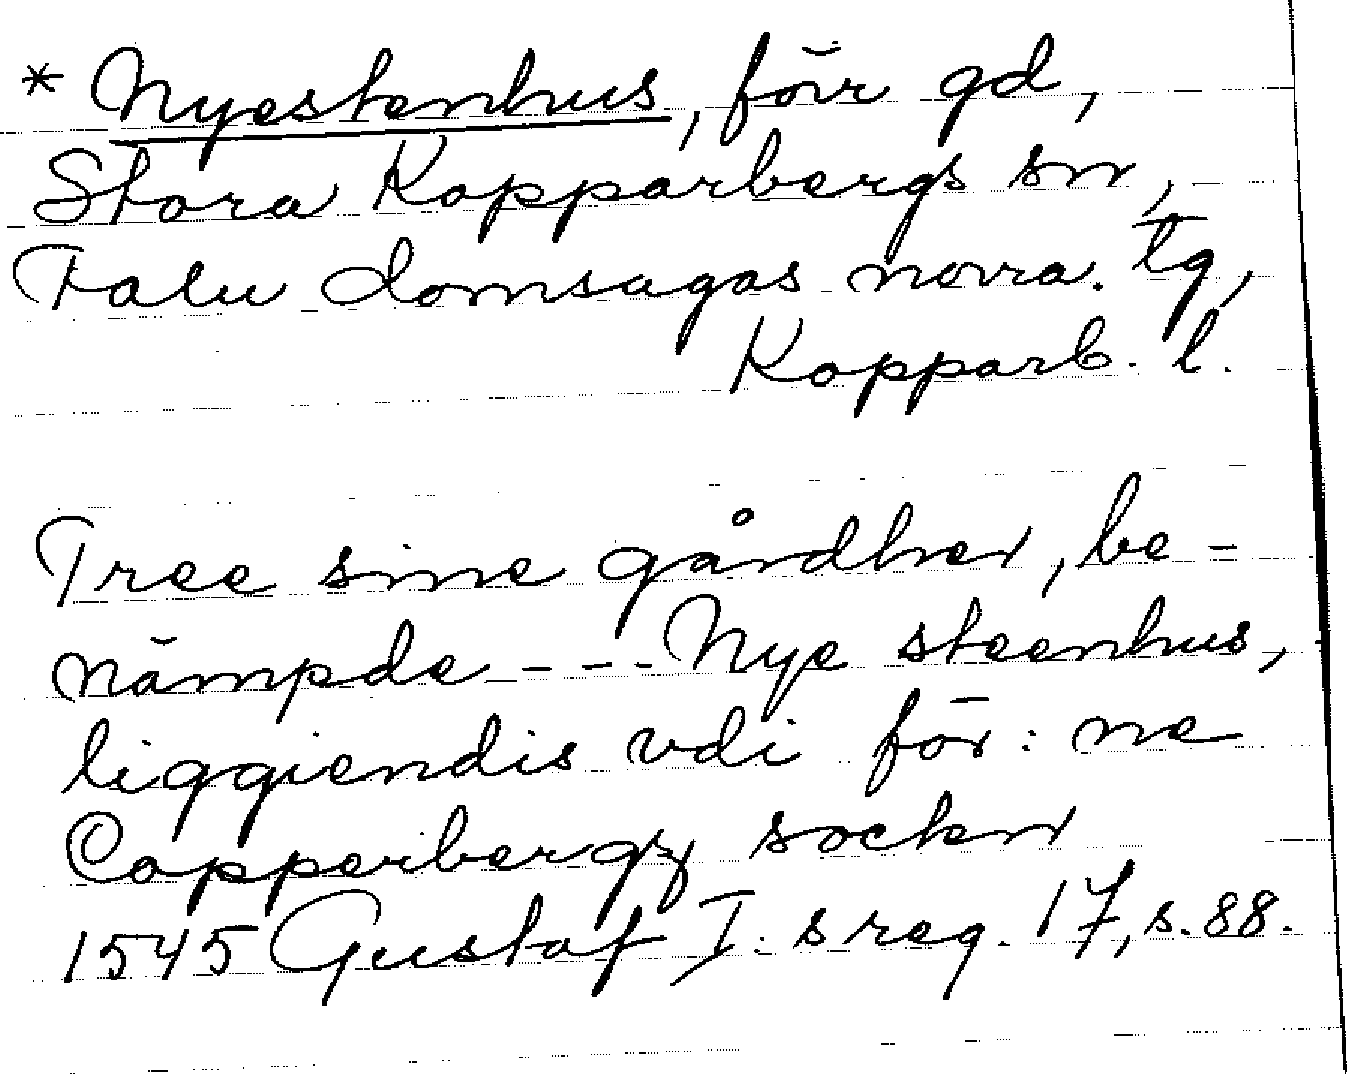 * Nyestenhus, förr gd,
Stora Kopparbergs sn,
Falu domsagas norra. tg,
Kopparb. l.
Tree sine gårdher, be-
nämpde --- Nye steenhus,
liggiendis vdi för: ne
Copperbergz sockn
1545 Gustaf I. s reg. 17, s. 88.